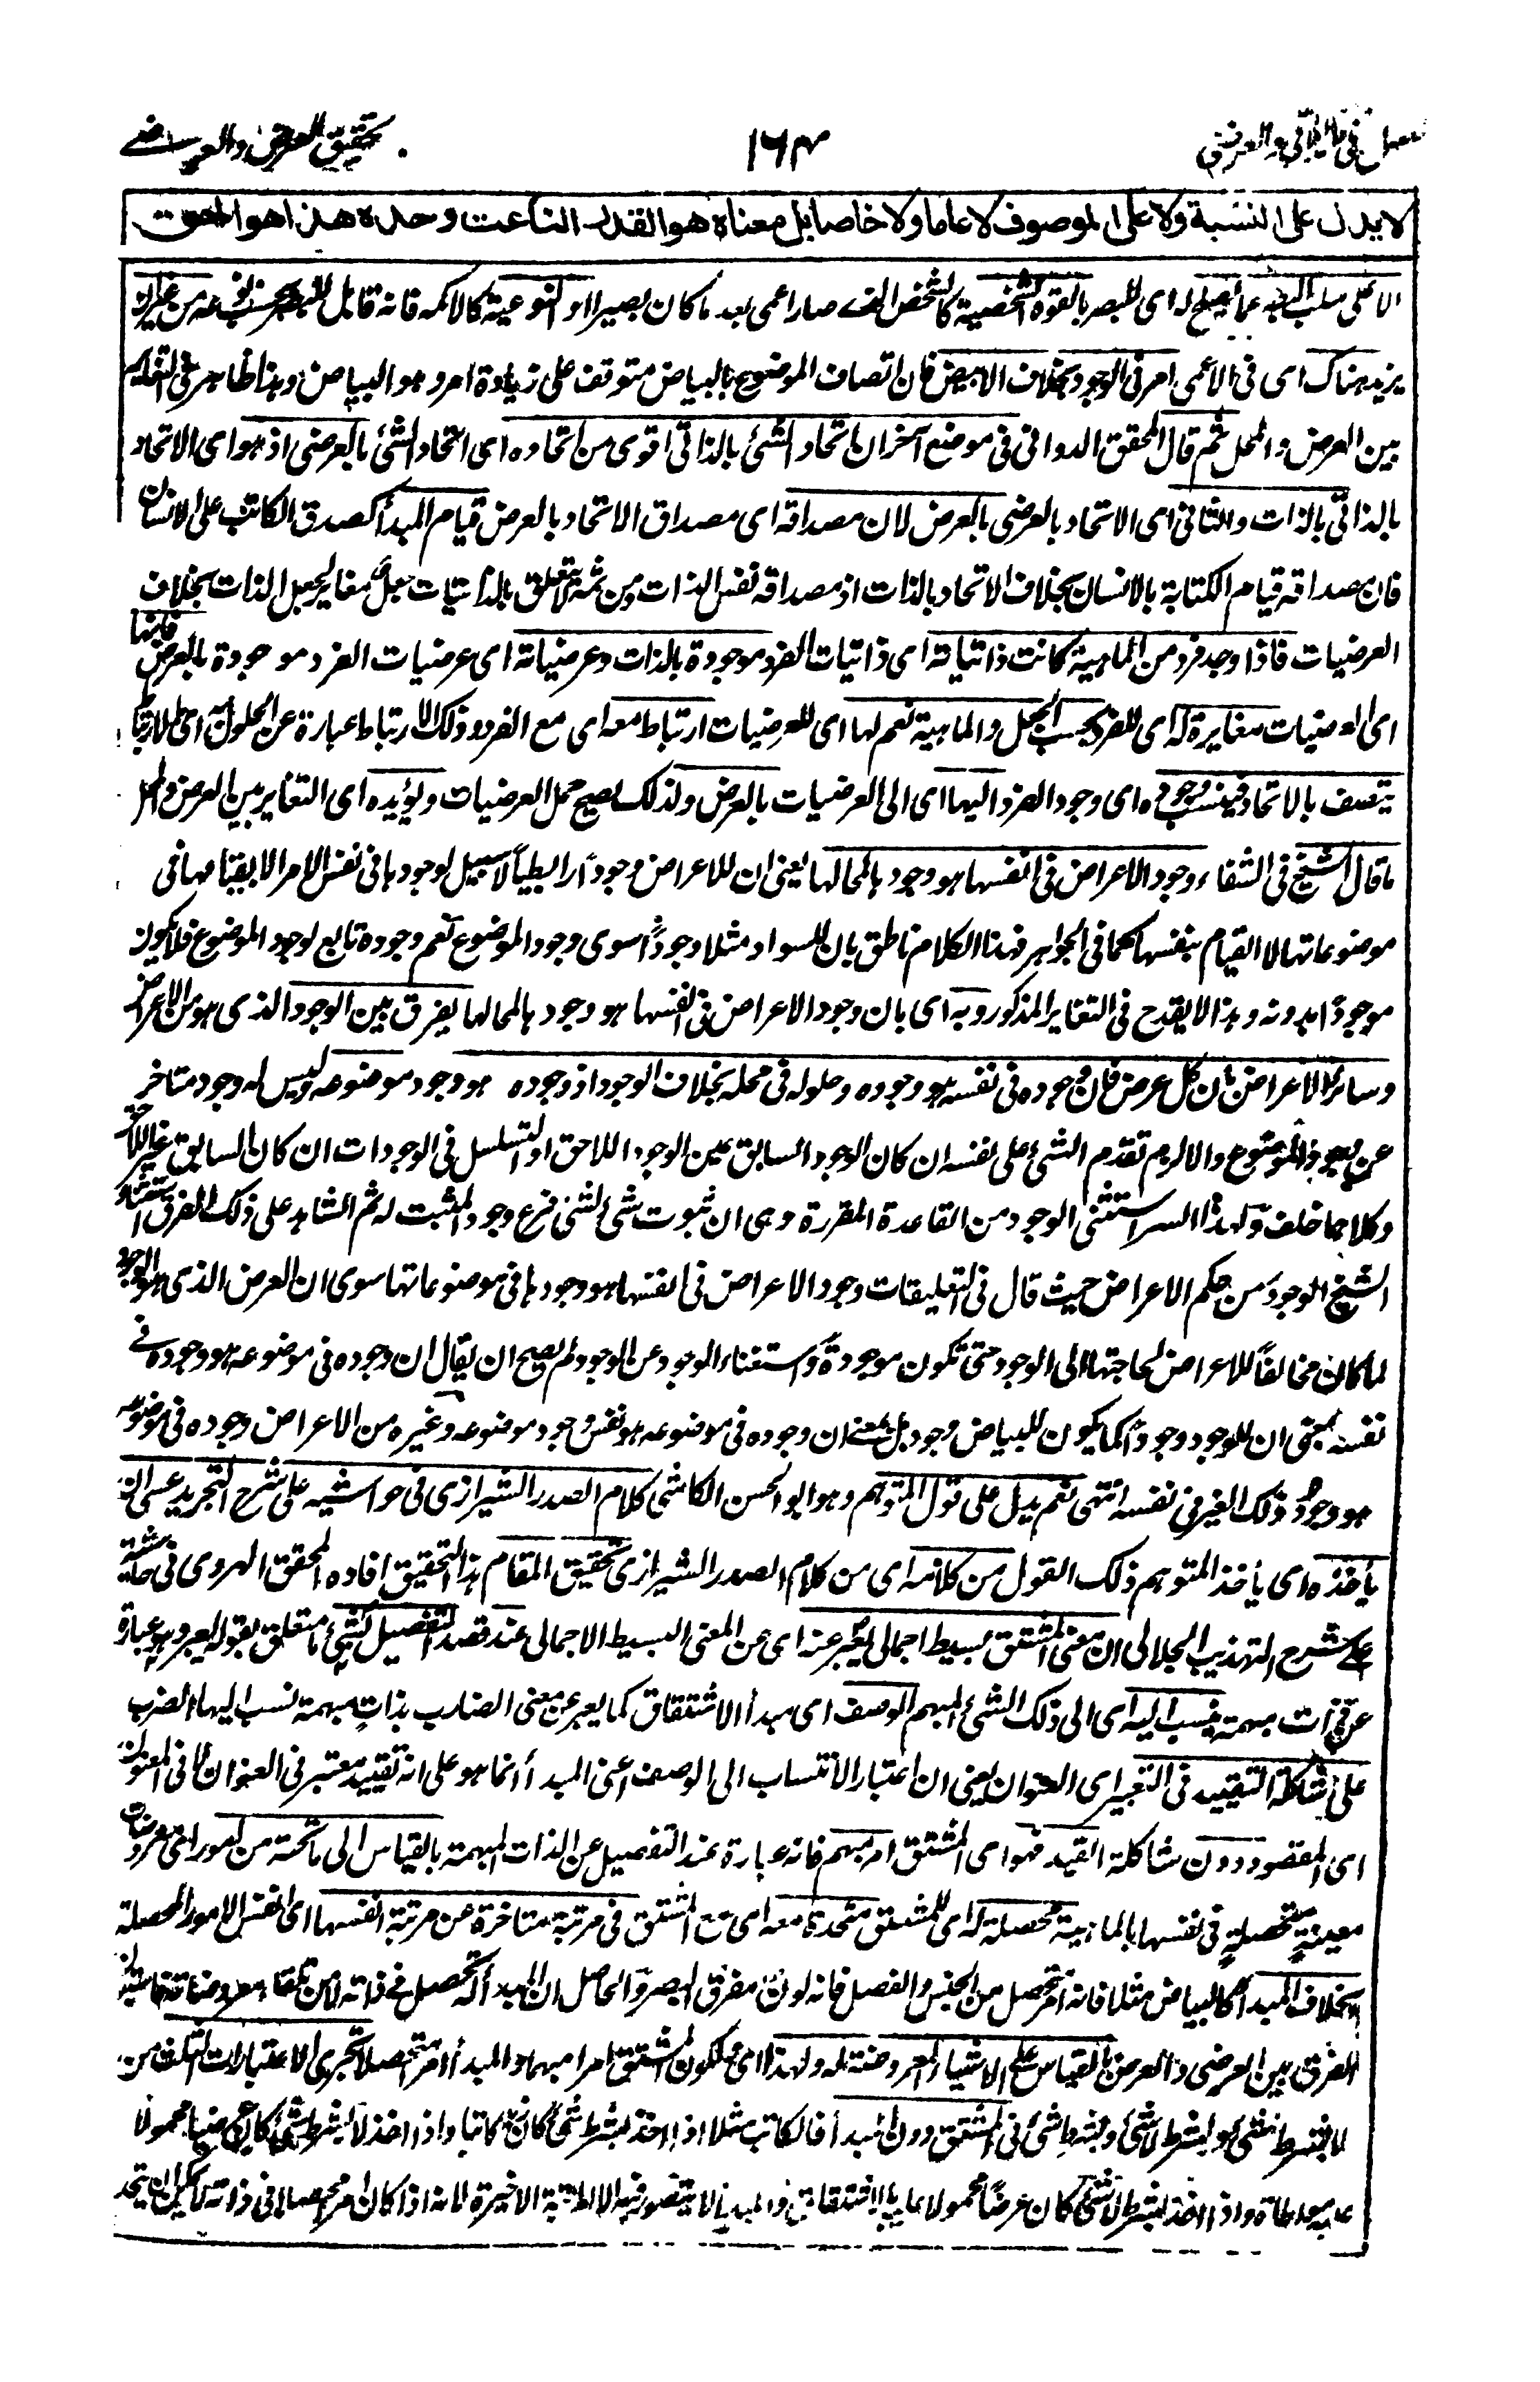 فصل في الذاتي والعرضي
١٦٣
تحقيق العرض والعرضي
لا يدل على النسبة ولا على الموصوف لا عاما ولا خاصا بل معناه هو القدر الناعت وحده هذا هو الحق
الاعمى سلب البصر عما يصلح له اى للبصر بالقوة الشخصية كالشخص الذي صار اعمى بعد ما كان بصيرا او النوعية كالاكمه فانه قابل للبصر عنه من غير ان
يزيد هناك اى فى الاعمى امر فى الوجود بخلاف الابيض فان اتصاف الموضوع بالبياض متوقف على زيادة امر وهو البياض وهذا ظاهر فى التغاير
بين العرض والمحل ثم قال المحقق الدوانى فى موضع آخر ان اتحاد الشئ بالذاتى اقوى من اتحاده اى اتحاد الشئ بالعرضى اذ هو اى الاتحاد
بالذاتى بالذات والثانى اى الاتحاد بالعرضى بالعرض لان مصداقه اى مصداق الاتحاد بالعرض قيام المبدأ كصدق الكاتب على الانسان
فان مصداقه قيام الكتابة بالانسان بخلاف الاتحاد بالذات اذ مصداقه نفس الذات ومن ثمة لا يتعلق بالذاتيات جعل مغاير لجعل الذات بخلاف
العرضيات فاذا وجد فرد من الماهية كانت ذاتياته اى ذاتيات الفرد موجودة بالذات وعرضياته اى عرضيات الفرد موجودة بالعرض فانها
اى العرضيات مغايرة له اى للفرد بحسب الجعل والماهية نعم لها اى للعرضيات ارتباط معه اى مع الفرد وذلك الارتباط عبارة عن الحلول
يتصف بالاتحاد فينسب وجوده اى وجود الفرد اليها اى الى العرضيات بالعرض ولذلك يصح حمل العرضيات ويؤيده اى التغاير بين العرض والمحل
ما قال الشيخ فى الشفاء وجود الاعراض فى انفسها هو وجودها لمحالها يعنى ان للاعراض وجودا رابطيا لا سبيل لوجودها فى نفس الامر الا بقيامها فى
موضوعاتها لا القيام بنفسها كما فى الجواهر فهذا الكلام ناطق بان للسواد مثلا وجودا سوى وجود الموضوع نعم وجوده تابع لوجود الموضوع فلا يكون
موجودا بدونه وهذا لا يقدح فى التغاير المذكور وبه اى بان وجود الاعراض فى انفسها هو وجودها لمحالها يفرق بين الوجود الذى هو من الاعراض
وسائر الاعراض بان كل عرض فان وجوده فى نفسه هو وجوده وحلوله فى محله بخلاف الوجود اذ وجوده هو وجود موضوعه وليس له وجود متاخر
عن وجود الموضوع والا لزم تقدم الشئ على نفسه ان كان الوجود السابق عين الوجود اللاحق او التسلسل فى الوجودات ان كان السابق غير اللاحق
وكلاهما خلف ولهذا السر استثنى الوجود من القاعدة المقررة وهى ان ثبوت شئ لشئ فرع وجود المثبت له ثم الشاهد على ذلك الفرق استثناء
الشيخ الوجود من حكم الاعراض حيث قال فى التعليقات وجود الاعراض فى انفسها هو وجودها فى موضوعاتها سوى ان العرض الذى هو الوجود
لما كان مخالفا للاعراض لحاجتها الى الوجود حتى تكون موجودة واستغناء الوجود عن الوجود لم يصح ان يقال ان وجوده فى موضوعه هو وجوده فى
نفسه بمعنى ان للوجود وجودا كما يكون للبياض وجود بل بمعنى ان وجوده فى موضوعه هو نفس وجود موضوعه وغيره من الاعراض وجوده فى موضوعه
هو وجود ذلك الغير فى نفسه انتهى نعم يدل على قول المتوهم وهو ابو الحسن الكاشى كلام الصدر الشيرازى فى حواشيه على شرح التجريد عسى ان
يأخذه اى يأخذ المتوهم ذلك القول من كلامه اى من كلام الصدر الشيرازى تحقيق المقام هذا التحقيق افاده المحقق الهروى فى حاشيته
على شرح التهذيب الجلالى ان معنى المشتق بسيط اجمالى يعبر عنه اى عن المعنى البسيط الاجمالى عند قصد التفصيل بشئ ما متعلق بقوله يعبر وهو عبارة
عن ذات مبهمة ينسب اليه اى الى ذلك الشئ المبهم الوصف اى مبدأ الاشتقاق كما يعبر عن معنى الضارب بذات مبهمة نسب اليها الضرب
على شاكلة التقييد فى التعبير اى العنوان يعنى ان اعتبار الانتساب الى الوصف اعنى المبدأ انما هو على انه تقييد معتبر فى العنوان لا فى المعنون
اى المقصود دون شاكلة القيد فهو اى المشتق امر مبهم فانه عبارة عند التفصيل عن الذات المبهمة بالقياس الى ما تحته من امور اعنى معروضات
معينة متحصلة فى نفسها بالماهية محصلة له اى للمشتق متحدة معه اى مع المشتق فى مرتبة متاخرة عن مرتبة انفسها اى انفس الامور المحصلة
بخلاف المبدأ كالبياض مثلا فانه امر متحصل من الجنس والفصل فانه لون مفرق للبصر والحاصل ان المبدأ له تحصل فى ذاته لا من تلقاء معروضاته
الفرق بين العرضى والعرض بالقياس على الاشياء المعروضة له ولهذا اى لكون المشتق امرا مبهما والمبدأ امرا متحصلا تجرى الاعتبارات الثلث من
لا بشرط شئ وبشرط لا شئ وبشرط شئ فى المشتق دون المبدأ فالكاتب مثلا اذا اخذ بشرط شئ كان كاتبا واذا اخذ لا بشرط شئ كان عرضيا محمولا
عليه مواطاة واذا اخذ بشرط لا شئ كان عرضا محمولا عليه بالاشتقاق والمبدأ لا يتصور فيه الا المرتبة الاخيرة لانه اذا كان امرا متحصلا فى ذاته لا يمكن ان يتحد